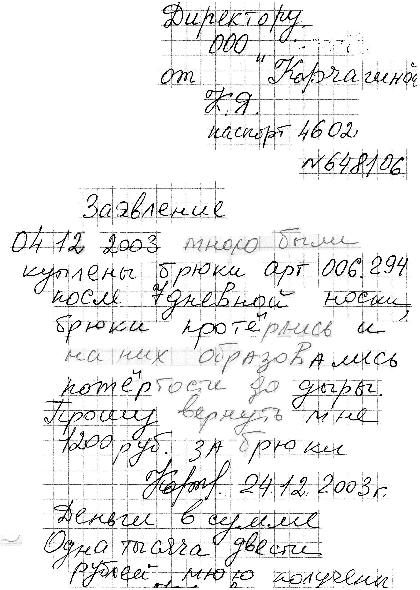 Директору
ООО "
от Корчагиной
К.Я.
паспорт 4602
№648106
Заявление
04 12 2003 мною были
куплены брюки арт 006.294
после 7дневной носки,
брюки протёрлись и
на них образовались
потёртости до дыры.
Прошу вернуть мне
1200 руб. за брюки
24.12.2003г.
Деньги в сумме
Одна тысяча двести
рублей мною получены